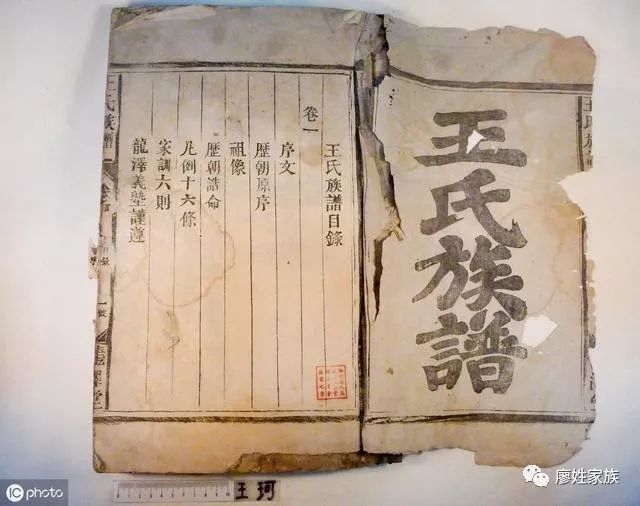 王氏族譜
王氏族譜目錄
卷一
序文
歷朝原序
祖像
歷朝誥命
凡例十六條
家訓六則
龍潭義塾謹遵
王氏族譜
王珂
iC photo
廖姓家族